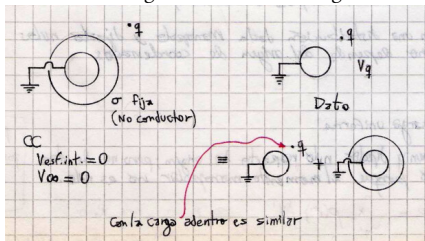 • q
• q
V_q
σ fija
(No conductor)
Dato
CC
V esf. int. = 0
V∞ = 0
≡
• q
+
Con la carga adentro es similar